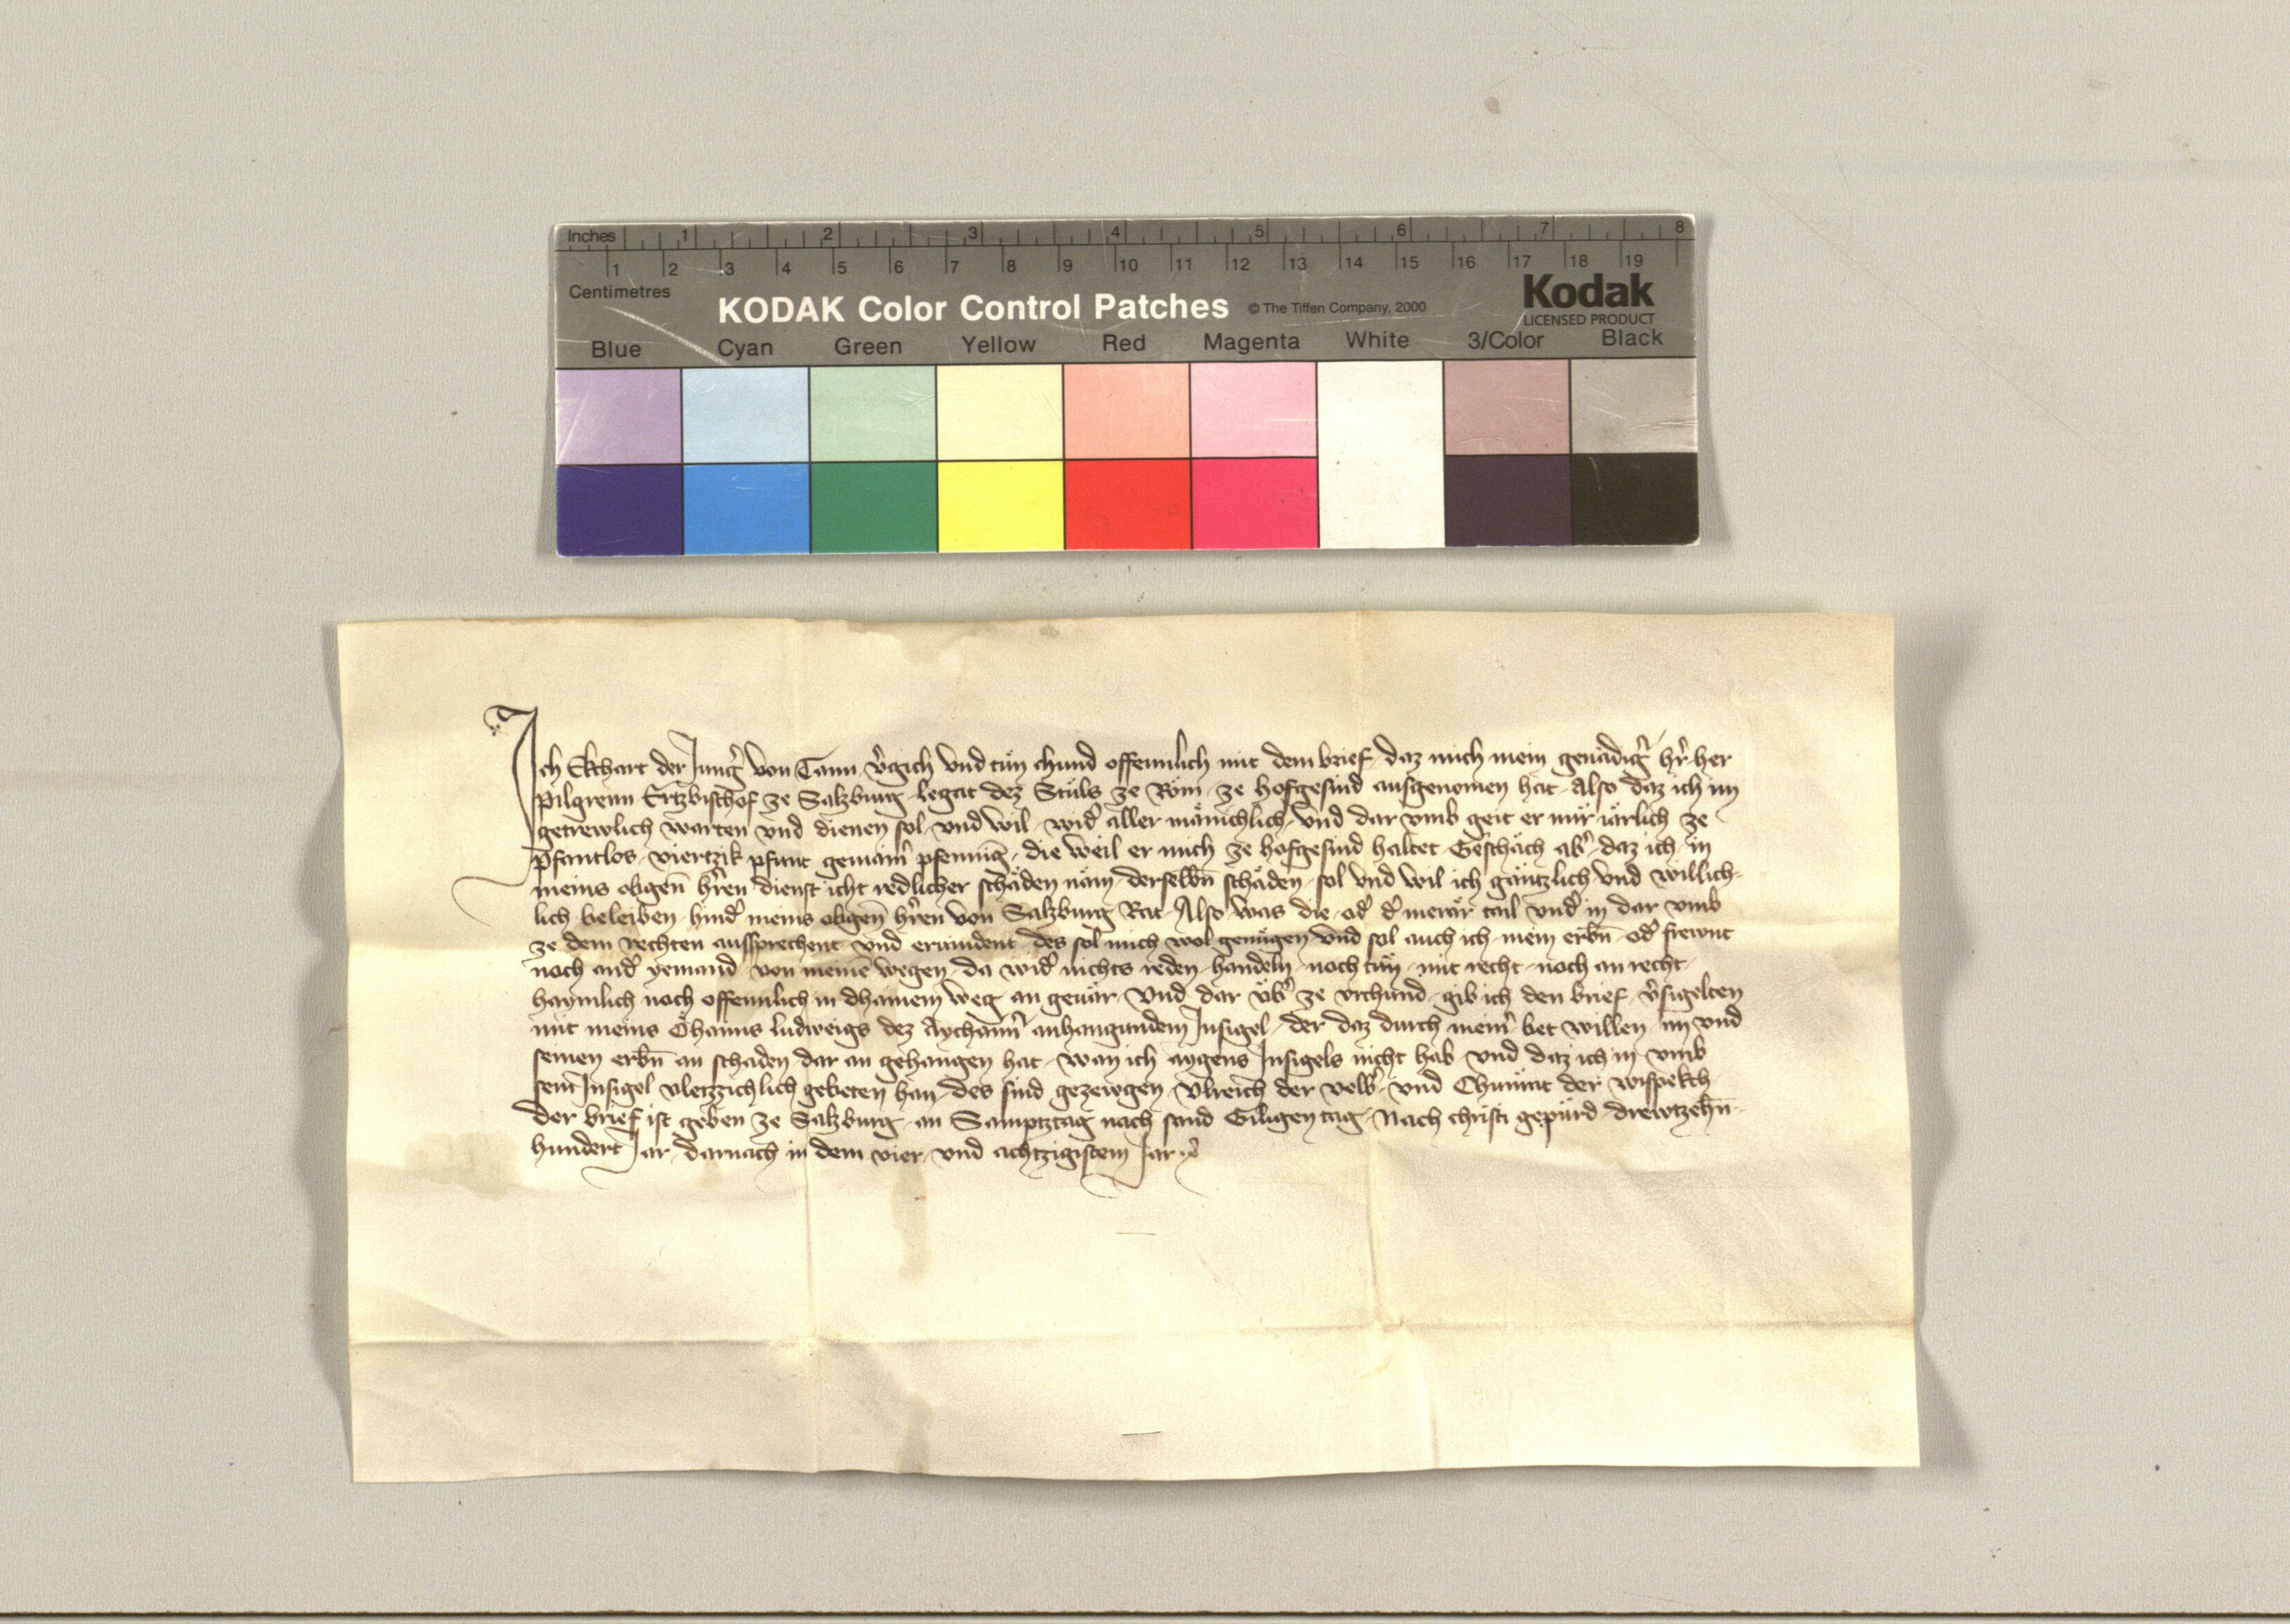 Inches 1 2 3 4 5 6 7 8
1 2 3 4 5 6 7 8 9 10 11 12 13 14 15 16 17 18 19
Centimetres
KODAK Color Control Patches © The Tiffen Company, 2000 Kodak
LICENSED PRODUCT
Blue Cyan Green Yellow Red Magenta White 3/Color Black
Ich Ekchart der Jung̉ von Tann v̉gich vnd tuͤn chund offennlich mit dem brief daz mich mein genaͤdig̉ hr̉ her
Pilgreim Ertzbischof ze Salzburg legat dez Stuͤls ze Rom ze hofgesind aufgenomen hat Also daz ich im
getrewlich warten vnd dienen sol vnd wil wid̉ aller maͤnichlich vnd dar vmb geit er mir iaͤrlich ze
pfantlos viertzik pfunt gemain̉ pfenniḡ die weil er mich ze hofgesind haltet Geschaͤch ab̉ daz ich in
meins obgen̄ hr̉en dienst icht redlicher schaͤden naͤm derselbn̄ schaͤden sol vnd wil ich gaͤntzlich vnd willich-
lich beleiben hind̉ meins obgen̄ hr̉en von Salzburg Rat Also was die od̉ d̉ meraͤr tail vnd̉ in dar vmb
ze dem rechten aussprechent vnd eruindent des sol mich wol genuͤgen vnd sol auch ich mein erbn̄ od̉ frewnt
noch and̉ yemand von meinē wegen da wid̉ nichts reden handeln noch tuͤn mit recht noch an recht
haymlich noch offennlich in dhainem weg an geuaͤr Vnd dar uͤb̉ ze vrchund gib ich den brief v̉sigelten
mit meins Oͤhaims ludweigs dez Aychaim̉ anhangundem Insigel der daz durch mein̉ bet willen im vnd
seinen erbn̄ an schaden dar an gehangen hat wan ich aygens Insigels nicht hab vnd daz ich in vmb
sein Insigel vleizzichlich gebeten han des sind gezewgen Vlreich der velb̉ vnd Chunrat der wispekch
Der brief ist geben ze Salzburg an Samptztag nach sand Giligen tag Nach christi gepurd drewtzehn̄-
hundert Jar darnach in dem vier vnd achtzigistem Jar